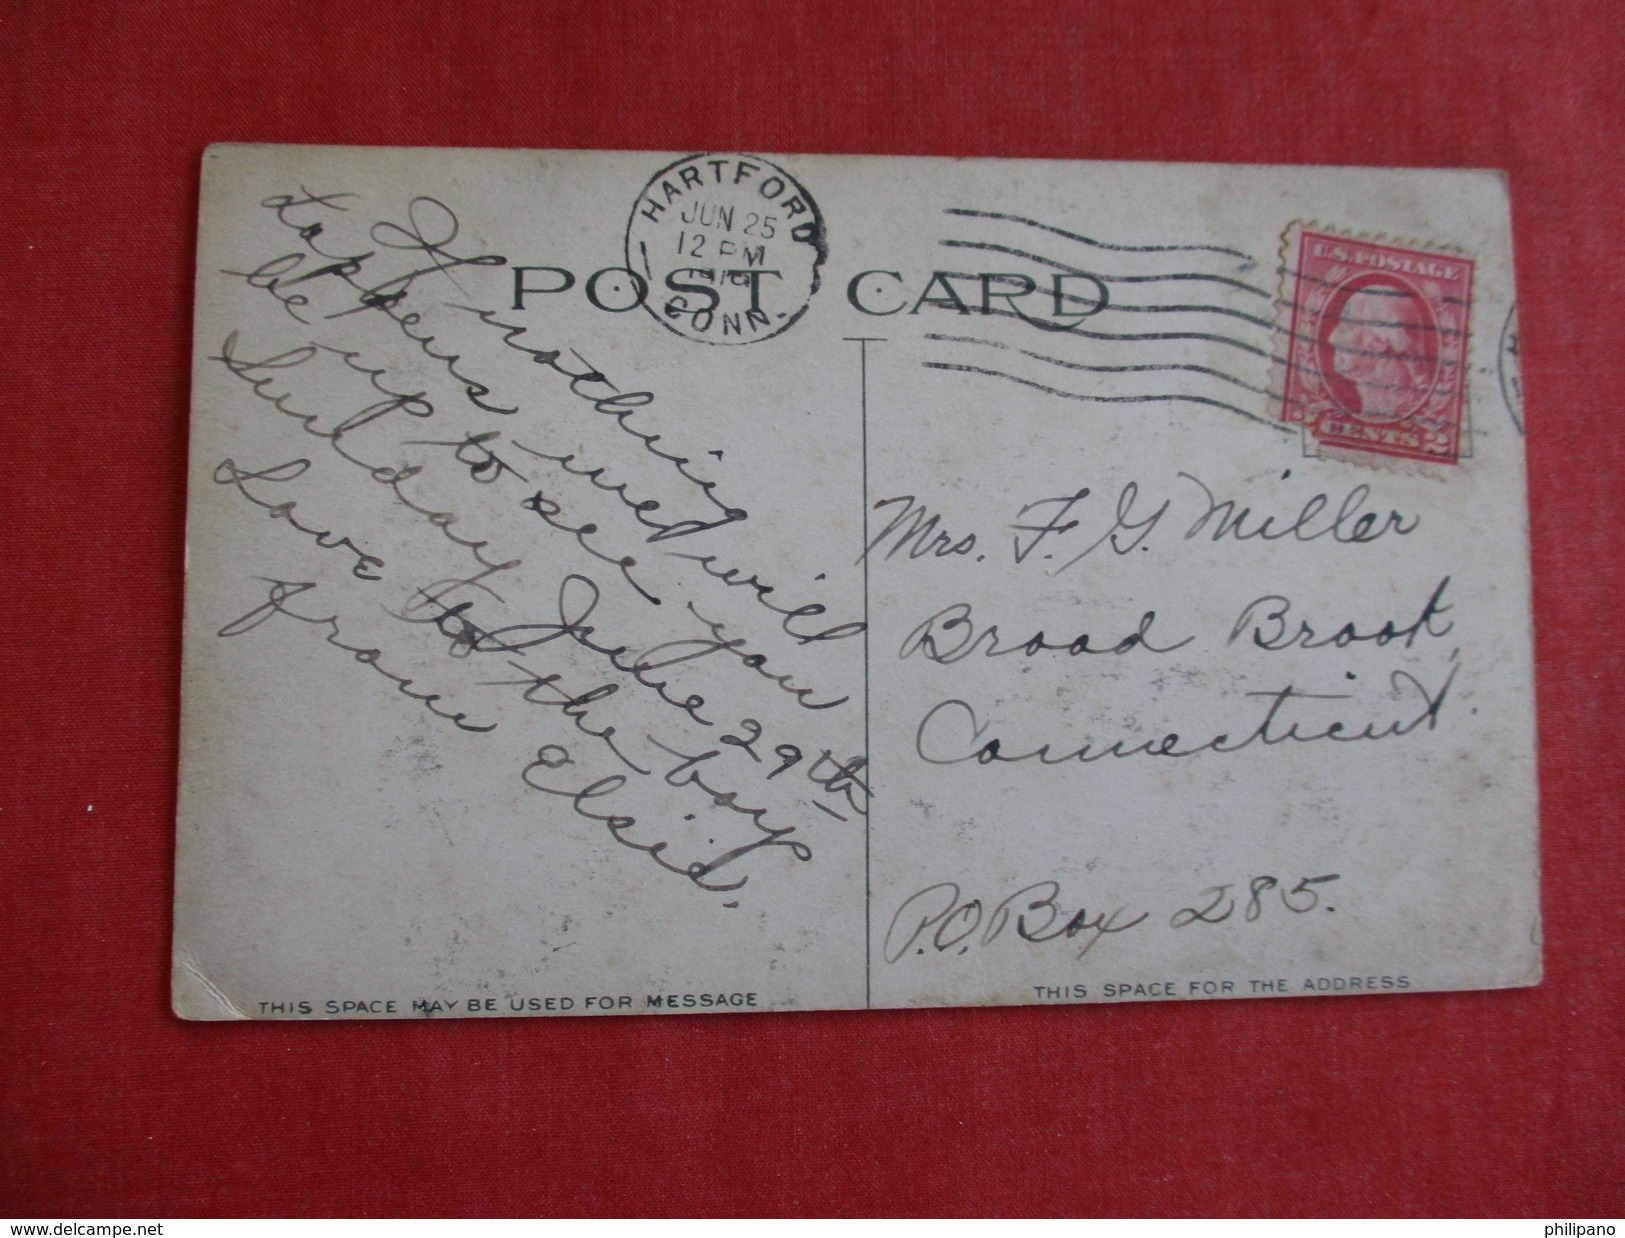 HARTFORD
JUN 25
12 PM
CONN.
POST CARD
U.S. POSTAGE
2 CENTS 2
If nothing
happens we will
be up to see you
Sunday June 29th
Love to the boys
from Elsie.
Mrs. F. G. Miller
Broad Brook,
Connecticut.
P.O. Box 285.
THIS SPACE MAY BE USED FOR MESSAGE
THIS SPACE FOR THE ADDRESS
delcampe.net
philipano